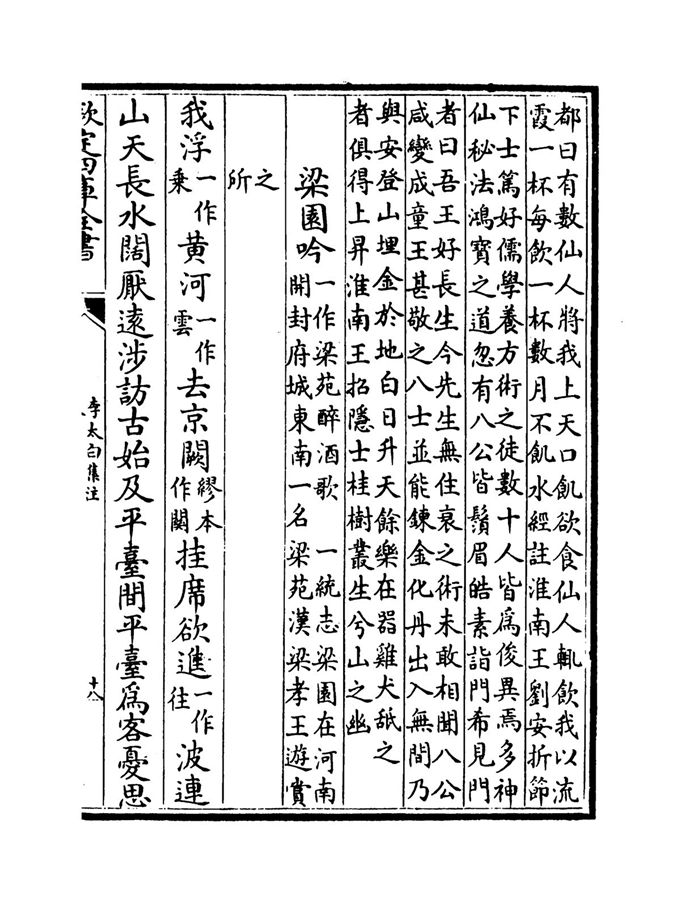 都曰有數仙人將我上天口飢欲食仙人輒飲我以流
霞一杯每飲一杯數月不飢水經註淮南王劉安折節
下士篤好儒學養方術之徒數十人皆爲俊異焉多神
仙秘法鴻寶之道忽有八公皆鬚眉皓素詣門希見門
者曰吾王好長生今先生無住衰之術未敢相聞八公
咸變成童王甚敬之八士並能鍊金化丹出入無間乃
與安登山埋金於地白日升天餘藥在器雞犬舐之
者俱得上昇淮南王招隱士桂樹叢生兮山之幽
梁園吟
一作梁苑醉酒歌 一統志梁園在河南
開封府城東南一名梁苑漢梁孝王遊賞
之
所
我浮一作乗黄河一作雲去京闕繆本作關挂席欲進一作往波連
山天長水闊厭遠涉訪古始及平臺間平臺爲客憂思
欽定四庫全書
李太白集注
十八